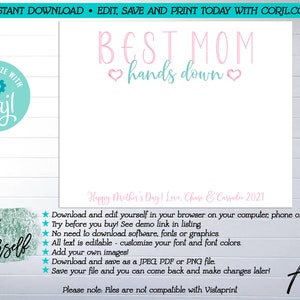 INSTANT DOWNLOAD • EDIT, SAVE AND PRINT TODAY WITH CORJL.CO
BEST MOM
hands down
Happy Mother's Day! Love, Chase & Cassidy 2021
★ Download and edit yourself in your browser on your computer, phone o
★ Try before you buy! See demo link in listing
★ No need to download software, fonts or graphics
★ All text is editable - customize your font and font colors.
★ Add your own images!
★ Download and save as a JPEG, PDF or PNG file.
★ Save your file and you can come back and make changes later!
Please note: Files are not compatible with Vistaprint